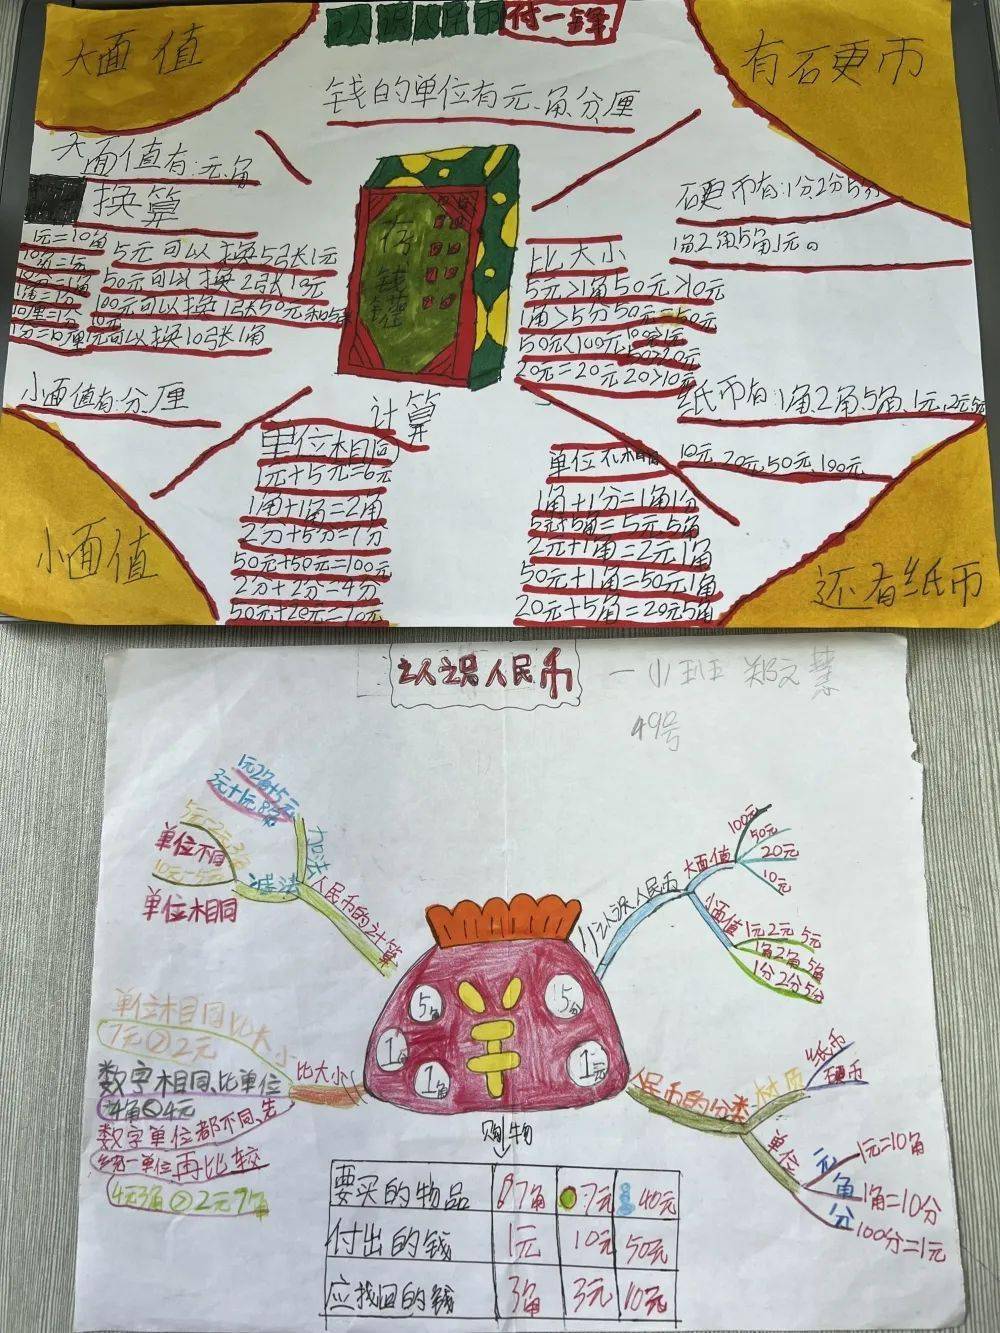 认识人民币 付一锋
大面值
有石更币
钱的单位有元、角、分、厘
大面值有:元、角
换算
1元=10角
5元可以换5张1元
50元可以换2张
100元可以换1张50元和5张
10元
1元可以换10张1角
存钱罐
石更币有:1分2分5分
1角2角5角1元。
比大小
5元>1角 50元>10元
1角>5分 50元=50元
50元<100元
20元=20元 20>10元
小面值有:分、厘
纸币有:1角、2角、5角、1元、2元、5元
10元、20元、50元、100元
计算
单位相同
1元+5元=6元
1角+1角=2角
2分+5分=1分
50元+50元=100元
2分+2分=4分
50元+20元=70元
单位不相同
1角+1分=1角1分
5元+5角=5元5角
2元+1角=2元1角
50元+1角=50元1角
20元+5角=20元5角
小面值
还有纸币
认识人民币
一小班 郑文
49号
加法
单位不同
减法
单位相同
人民币的计算
认识人民币
大面值
100元
50元
20元
10元
小面值
1元 2元 5元
1角 2角 5角
1分 2分 5分
5角
5分
1角
1元
单位相同比大小
7元>2元
数字相同、比单位
4角<4元
数字单位都不同、先
统一单位再比较
4元3角>2元7角
比大小
人民币的分类
材质
纸币
硬币
单位
元
角
分
1元=10角
1角=10分
100分=1元
购物
要买的物品 7角 7元 40元
付出的钱 1元 10元 50元
应找回的钱 3角 3元 10元